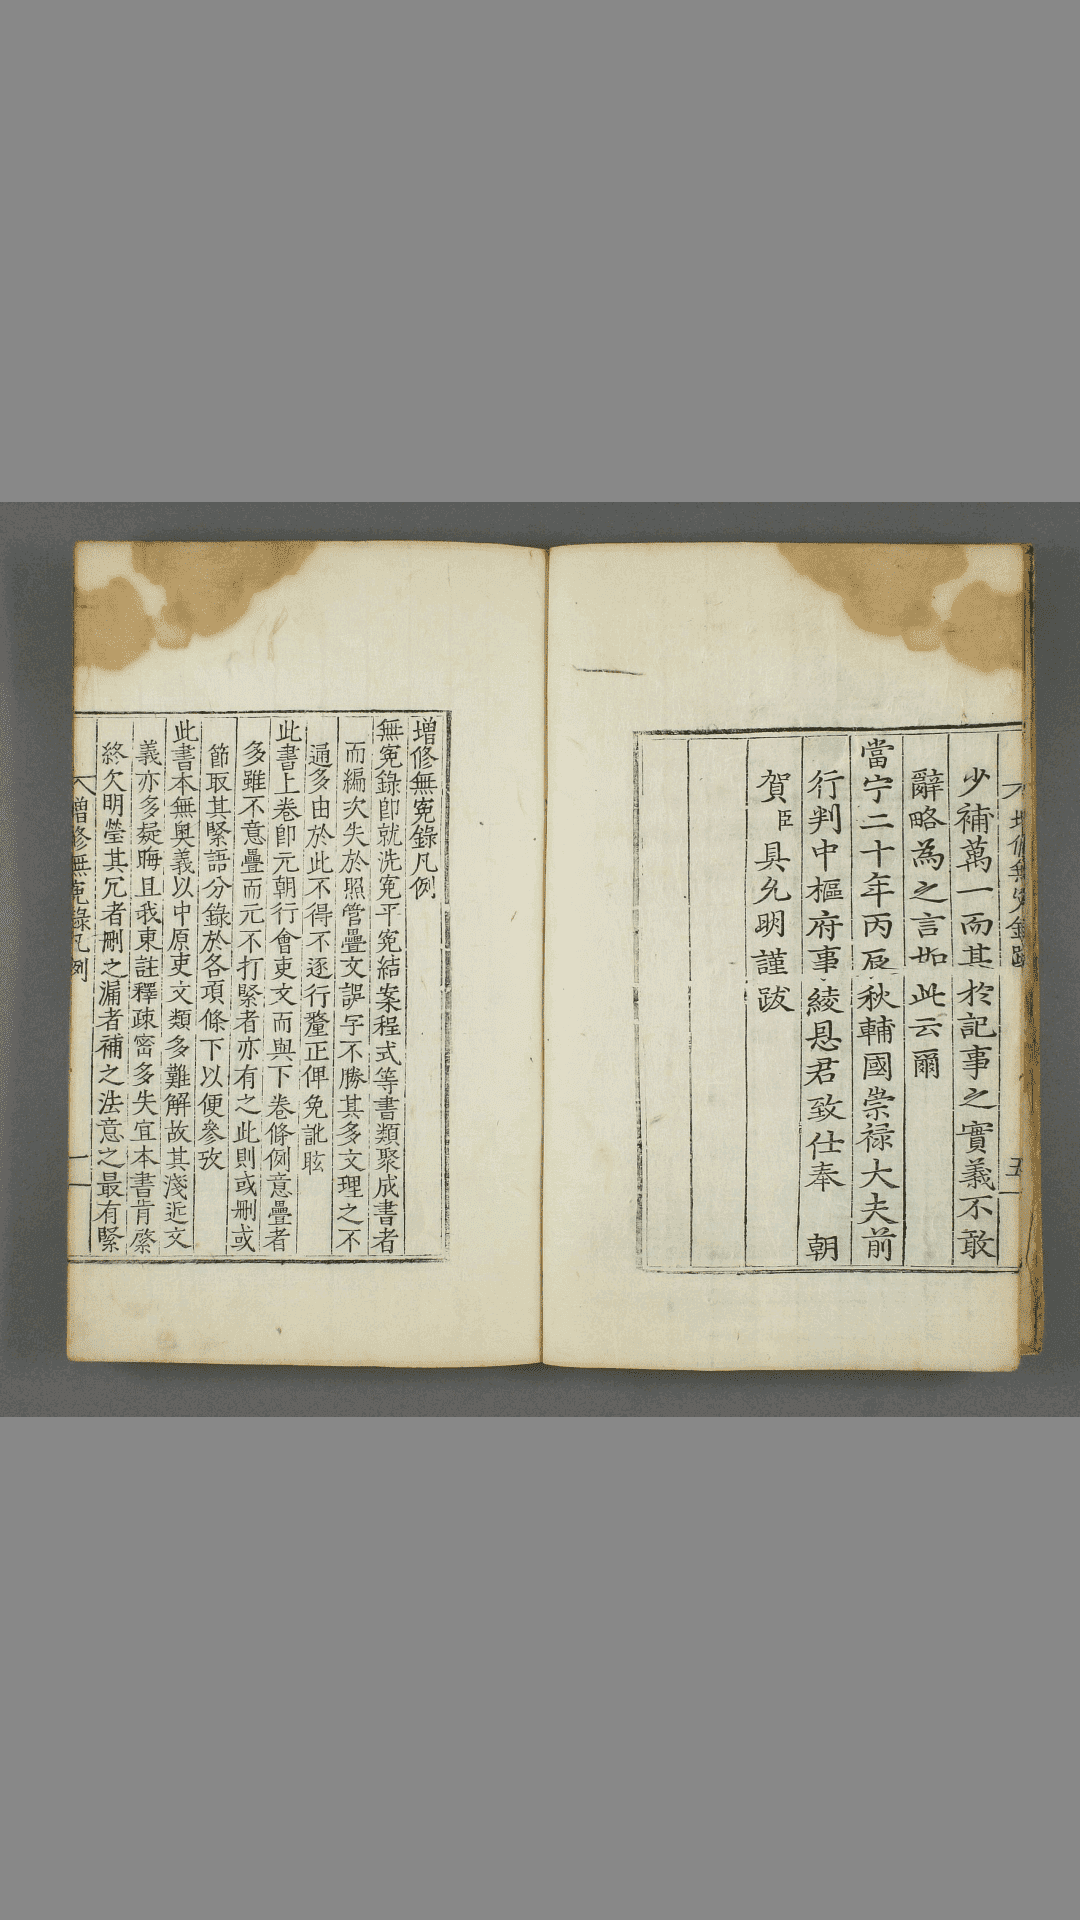 少補萬一而其於記事之實義不敢
辭略為之言如此云爾
當宁二十年丙辰秋輔國崇禄大夫前
行判中樞府事綾恩君致仕奉 朝
賀臣具允明謹跋
五
增修無寃錄凡例
無寃錄卽就洗寃平寃結案程式等書類聚成書者
而編次失於照管疊文誤字不勝其多文理之不
通多由於此不得不逐行釐正俾免訛眩
此書上卷卽元朝行會吏文而與下卷條例意疊者
多雖不意疊而元不打緊者亦有之此則或刪或
節取其緊語分錄於各項條下以便參攷
此書本無奧義以中原吏文類多難解故其淺近文
義亦多疑晦且我東註釋疎密多失宜本書肯綮
終欠明瑩其冗者刪之漏者補之法意之最有緊
增修無寃錄凡例
一